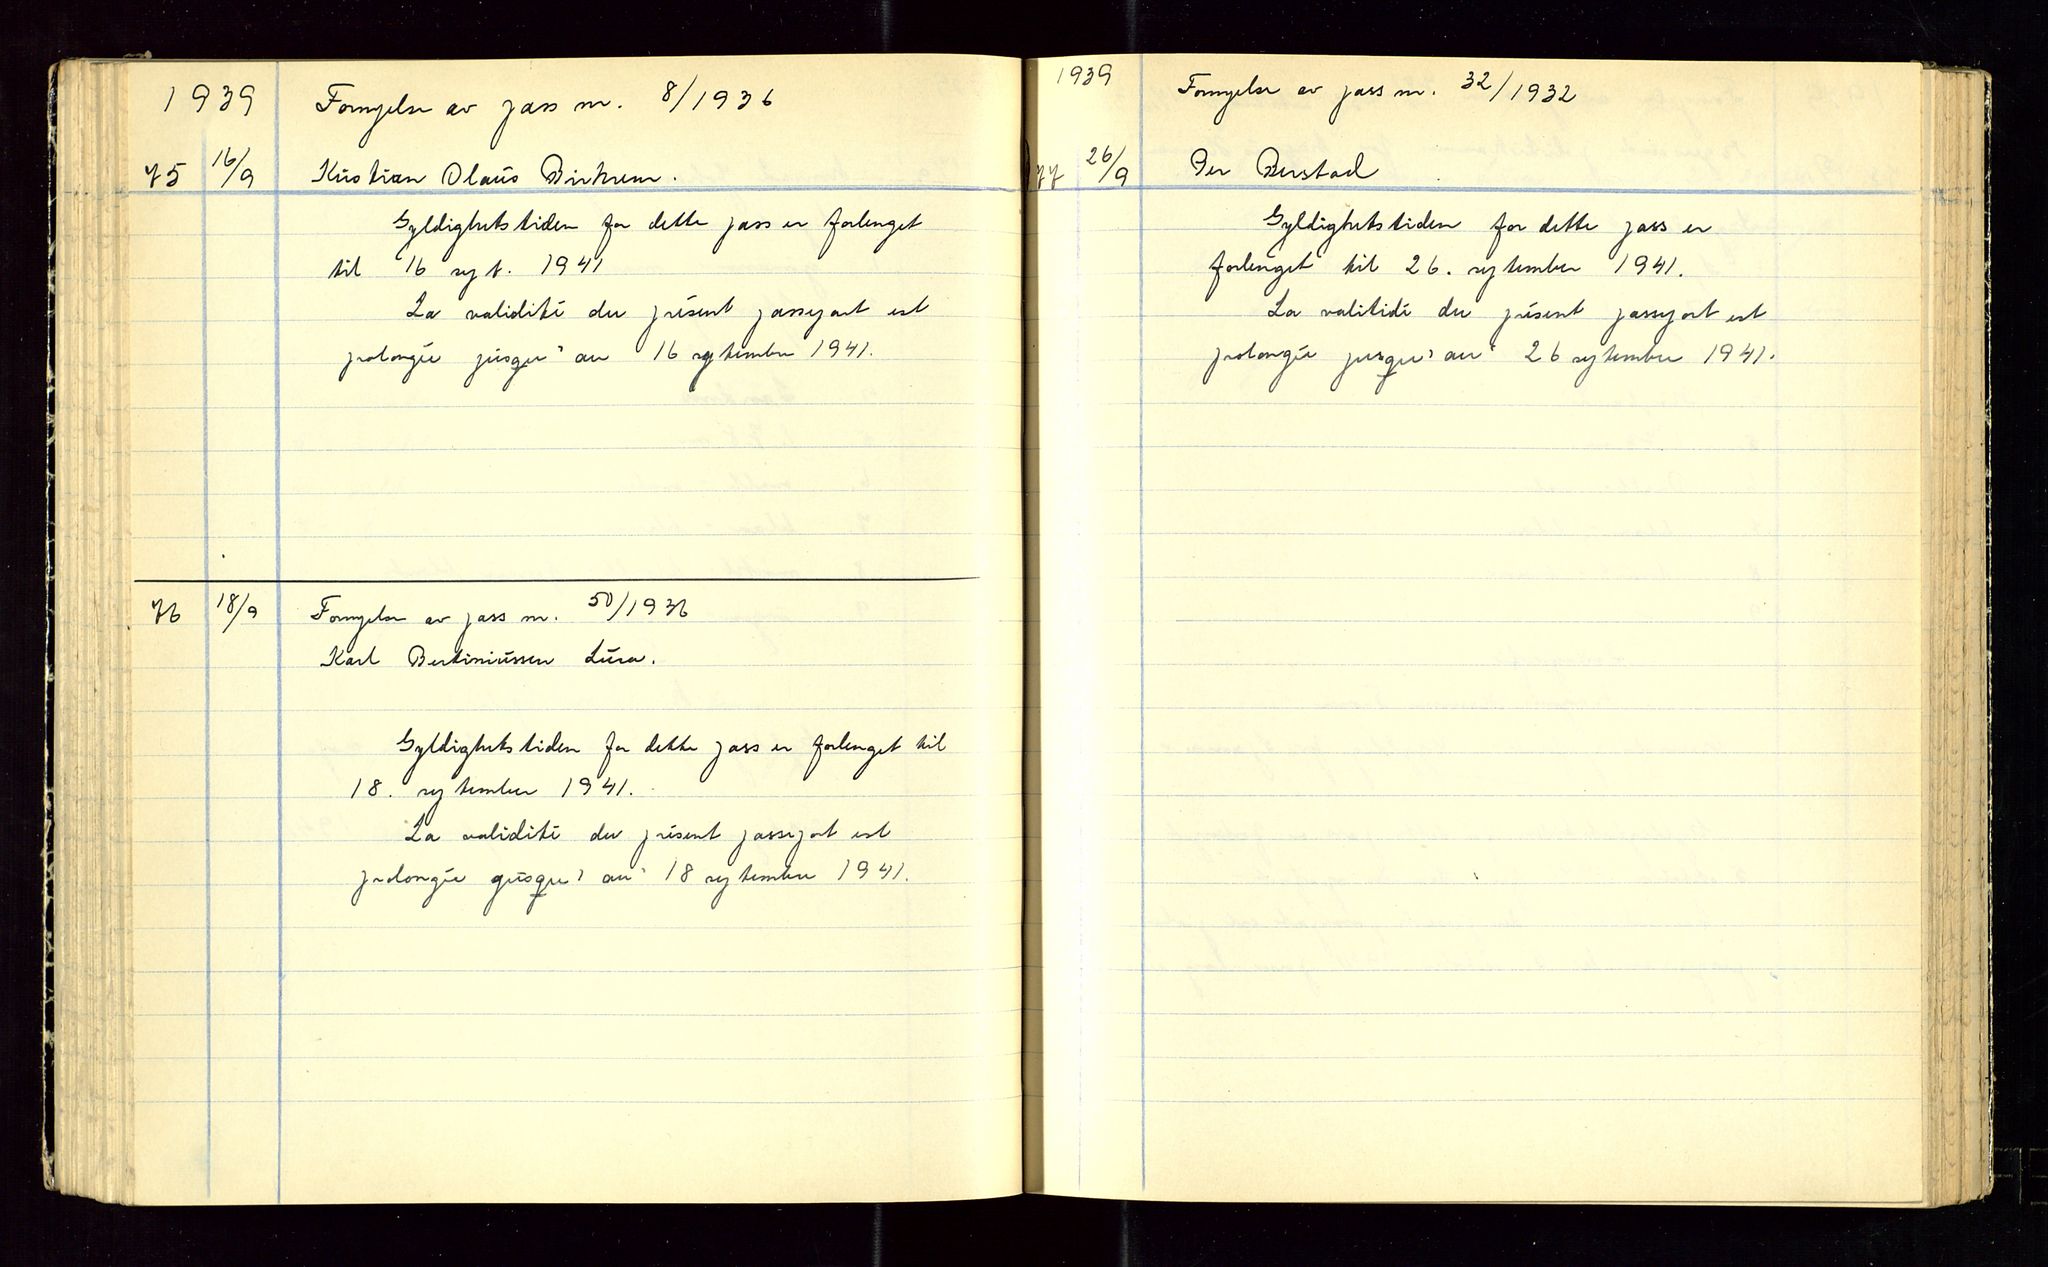 1939 Fornyelse av pass nr. 8/1936
75 16/9 Kristian Olaus Birkrem.
Gyldighetstiden for dette pass er forlenget
til 16 sept. 1941
La validité du présent passeport est
prolongée jusqu'au 16 september 1941.
76 18/9 Fornyelse av pass nr. 50/1936
Karl Bertiniussen Lura.
Gyldighetstiden for dette pass er forlenget til
18. september 1941.
La validité du présent passeport est
prolongée jusqu'au 18 september 1941.
1939 Fornyelse av pass nr. 32/1932
77 26/9 Per Berstad
Gyldighetstiden for dette pass er
forlenget til 26. september 1941.
La valitidé du présent passeport est
prolongée jusqu'au 26 september 1941.